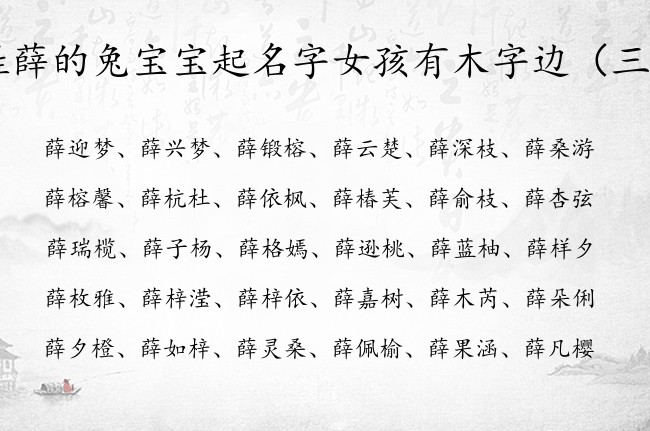 薛的兔宝宝起名字女孩有木字边（三
薛迎梦、薛兴梦、薛锻榕、薛云楚、薛深枝、薛桑游
薛榕馨、薛杭杜、薛依枫、薛椿芙、薛俞枝、薛杏弦
薛瑞榄、薛子杨、薛格嫣、薛逊桃、薛蓝柚、薛样夕
薛枚雅、薛梓滢、薛梓依、薛嘉树、薛木芮、薛朵俐
薛夕橙、薛如梓、薛灵桑、薛佩榆、薛果涵、薛凡樱